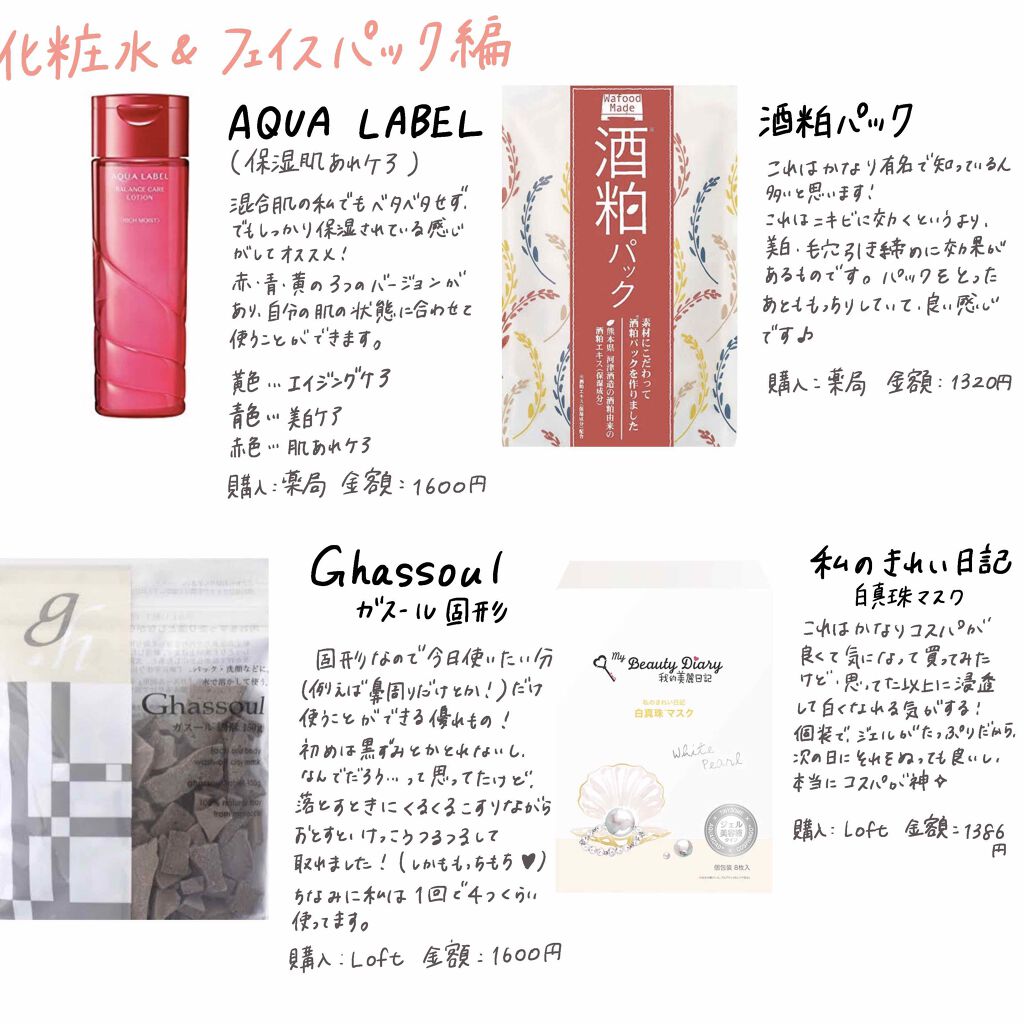 化粧水&フェイスパック編
AQUA LABEL
BALANCE CARE
LOTION
RICH MOIST
AQUA LABEL
(保湿肌あれケア)
混合肌の私でもベタベタせず、
でもしっかり保湿されている感じ
がしてオススメ!
赤・青・黄の3つのバージョンが
あり、自分の肌の状態に合わせて
使うことができます。
黄色…エイジングケア
青色…美白ケア
赤色…肌あれケア
購入:薬局 金額:1600円
Wafood
Made
酒粕パック
素材にこだわって
"酒粕パック"を作りました
熊本県 河津酒造の酒粕由来の
酒粕エキス(保湿成分)
酒粕パック
これはかなり有名で知っている人
多いと思います!
これはニキビに効くというより、
美白・毛穴引き締めに効果が
あるものです。パックをとった
あとももっちりしていて、良い感じ
です♪
購入:薬局 金額:1320円
gh
パック・洗顔などに。
水で溶かして使う、
Ghassoul
ガスール 固形 150g
Facial and body
wash-off clay mask
ghassoul tablet 150g
100% natural clay
from morocco
Ghassoul
ガスール固形
固形なので今日使いたい分
(例えば鼻周りだけとか!)だけ
使うことができる優れもの!
初めは黒ずみとかとれないし、
なんでだろう…って思ってたけど、
落とすときにくるくるこすりながら
おとすといけっこうつるつるして
取れました!(しかももっちもち♥)
ちなみに私は1回で4つくらい
使ってます。
購入:Loft 金額:1600円
My
Beauty Diary
我的美麗日記
私のきれい日記
白真珠 マスク
White
Pearl
ジェル
美容液
タイプ
個包装 8枚入
私のきれい日記
白真珠マスク
これはかなりコスパが
良くて気になって買ってみた
けど、思ってた以上に浸透
して白くなれる気がする!
個装で、ジェルがたっぷりだから、
次の日にそれをぬっても良いし、
本当にコスパが神✧
購入:Loft 金額:1386
円